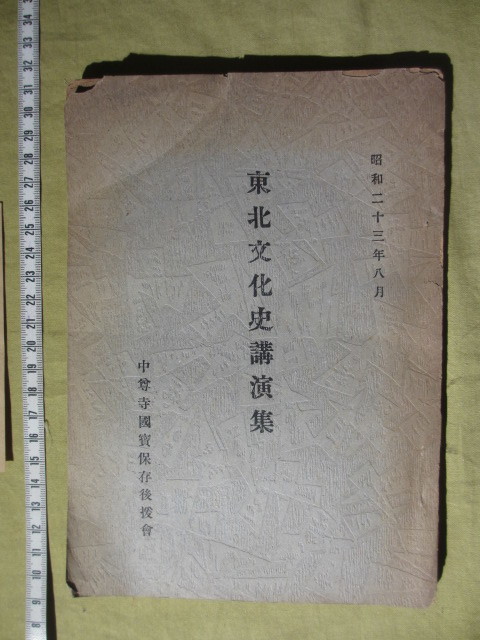 昭和二十三年八月
東北文化史講演集
中尊寺國寶保存後援會
34
33
32
31
30
29
28
27
26
25
24
23
22
21
20
19
18
17
16
15
14
13
12
11
10
9
8